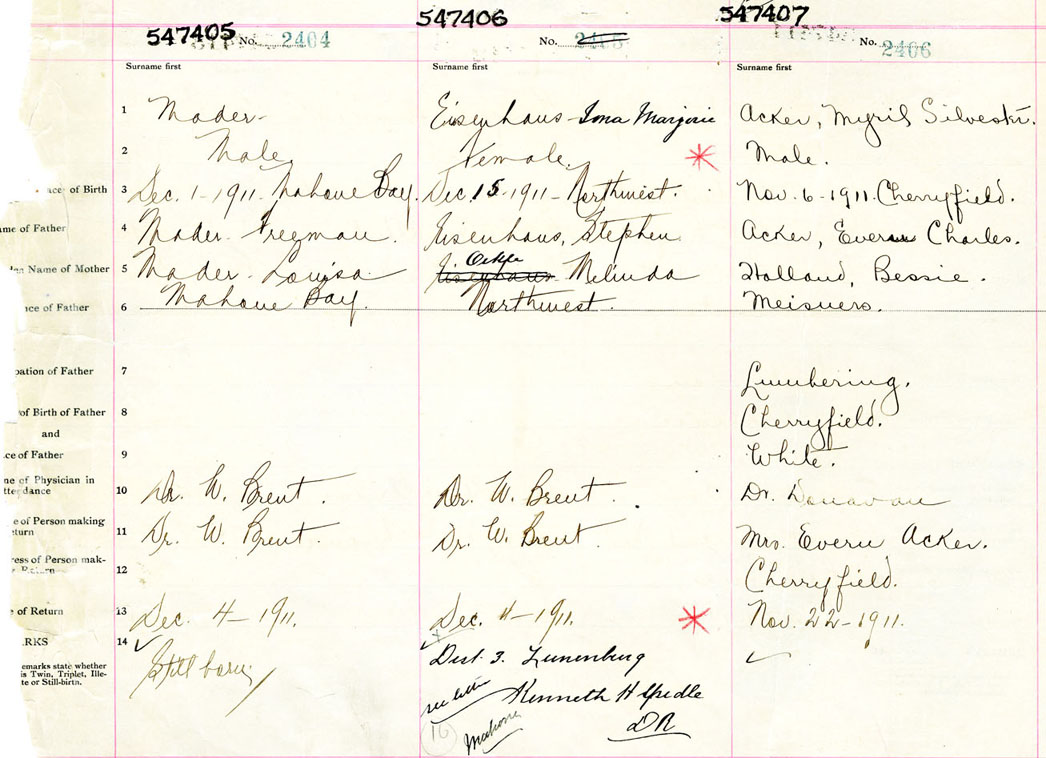 547405 547406 547407
No. 2404 No. 2405 No. 2406
Surname first Surname first Surname first
1 Mader- Eisenhaus-Iona Marjorie Acker, Myril Silvester.
2 Male. Female. Male.
ace of Birth 3 Dec. 1-1911. Mahone Bay. Dec. 15-1911-Northwest. Nov. 6-1911. Cherryfield.
ame of Father 4 Mader- Freeman. Eisenhaus, Stephen. Acker, Everu Charles.
Name of Mother 5 Mader- Louisa Eisenhaus Melinda Holland, Bessie.
ice of Father 6 Mahone Bay. Northwest. Meisners.
pation of Father 7 Lumbering.
of Birth of Father 8 Cherryfield.
and
ce of Father 9 White.
ne of Physician in
ttendance 10 Dr. W. Brent. Dr. W. Brent. Dr. Donavan
e of Person making
turn 11 Dr. W. Brent. Dr. W. Brent. Mrs. Everu Acker.
ress of Person mak-
Return 12 Cherryfield.
e of Return 13 Dec. 4-1911. Dec. 4-1911. Nov. 22-1911.
RKS 14 Still born Dist 3. Lunenburg
emarks state whether
is Twin, Triplet, Ille-
te or Still-birth.
see letter Kenneth H Spidle
16 Mahone DR